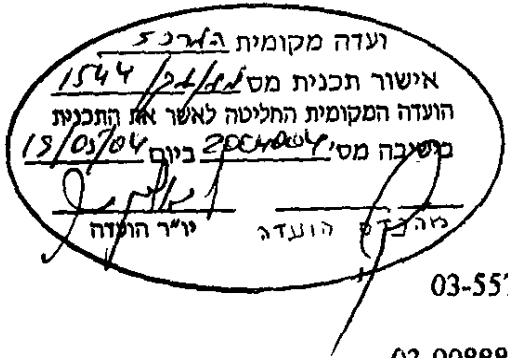 ועדה מקומית המרכז
אישור תכנית מס' 1544
הועדה המקומית החליטה לאשר את התכנית
בישיבה מס' 2004004 ביום 19/05/04
יו״ר הועדה מהנדס הועדה
03-557